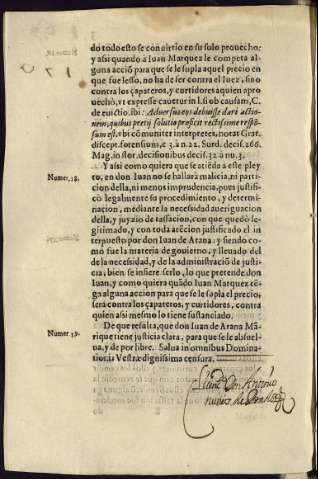 do todo esto se conuirtio en su solo prouecho;
y assi quando a Iuan Marquez le competa al-
guna acciõ para que se le supla aquel precio en
que fue lesso, no ha de ser contra el Iuez, sino
contra los çapateros, y curtidores aquien apro
uechò, vt expresse cauetur in l. si ob causam, C.
de euictio. ibi: Aduersus eos debuisse dari actio-
nem, quibus pretij solutio proficit rectissime respõ-
sum est, vbi cõmuniter interpretes, notat Grat.
discept. forensium, c. 3. à n. 21. Surd. decis. 266.
Mag. in flor. decisionibus decis. 32. à nu. 3.
Numer. 38. Y assi como quiera que se atiẽda a este pley
to, en don Iuan no se hallarà malicia, ni partici
cion della, ni menos imprudencia, pues justificò
legalmente su procedimiento, y determi-
nacion, mediante la necessidad aueriguacion
della, y juyzio de tassacion, con que quedò le-
gitimado, y con toda acciõ justificado el in
terpuesto por don Iuan de Arana: y siendo co-
mo fue la materia de gouierno, y lleuado del
de la necessidad, y de la administraciõ de justi-
cia, bien se infiere serlo, lo que pretende don
Iuan, y como quiera quãdo Iuan Marquez tẽ-
ga alguna accion para que se le supla el precio,
serà contra los çapateros, y curtidores, contra
quien assi mesmo lo tiene sustanciado.
Numer. 39. De que resalta, que don Iuan de Arana Mã-
rique tiene justicia clara, para que se le absuel-
ua, y de por libre. Salua in omnibus Domina-
tionis Vestræ dignissima censura.
Don Antonio